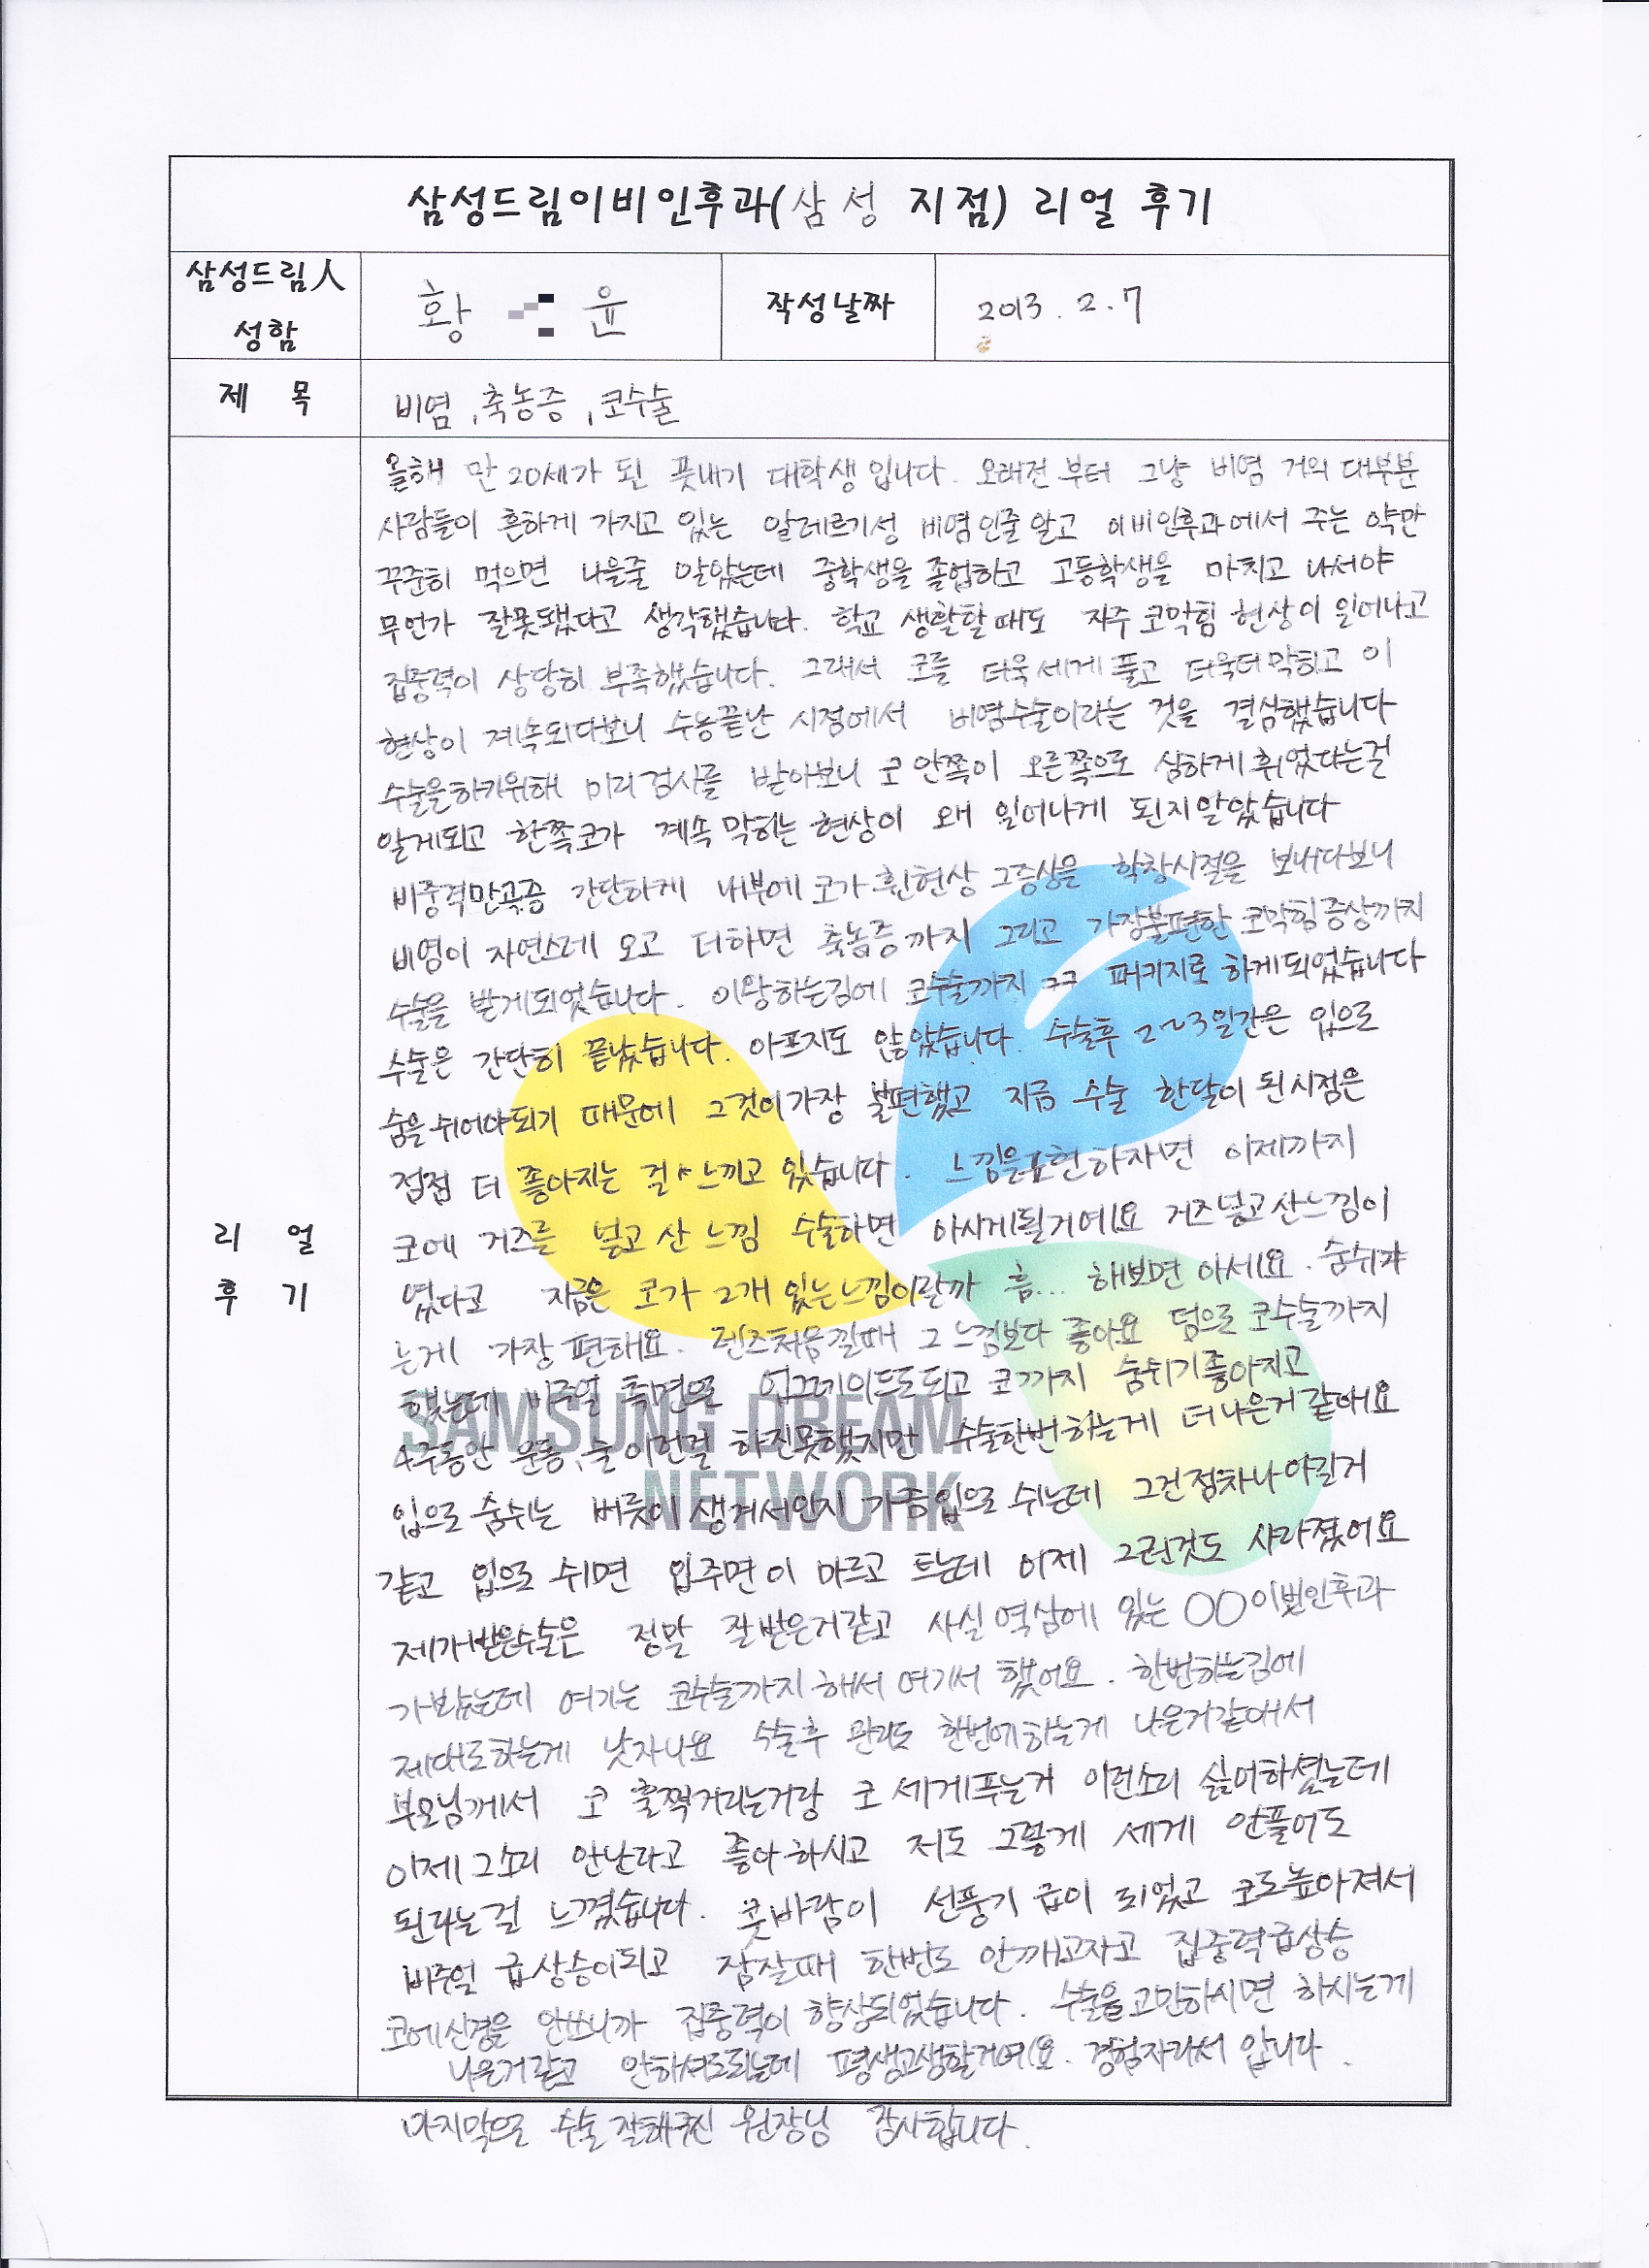 삼성드림이비인후과(삼성 지점) 리얼 후기
삼성드림人 성함
황 윤
작성날짜
2013. 2. 7
제 목
비염, 축농증, 코수술
리 얼
후 기
올해 만 20세가 된 풋내기 대학생입니다. 오래전 부터 그냥 비염 거의 대부분
사람들이 흔하게 가지고 있는 알레르기성 비염인줄 알고 이비인후과에서 주는 약만
꾸준히 먹으면 나을줄 알았는데 중학생을 졸업하고 고등학생을 마치고 나서야
무언가 잘못됐다고 생각했습니다. 학교 생활할때도 자주 코막힘 현상이 일어나고
집중력이 상당히 부족했습니다. 그래서 코를 더욱 세게 풀고 더욱더 막히고 이
현상이 계속되다보니 수능끝난 시점에서 비염수술이라는 것을 결심했습니다
수술을하기위해 미리 검사를 받아보니 코 안쪽이 오른쪽으로 심하게 휘었다는걸
알게되고 한쪽코가 계속 막히는 현상이 왜 일어나게 된지알았습니다
비중격만곡증 간단하게 내부에 코가 휜현상 그증상을 학창시절을 보내다보니
비염이 자연스레 오고 더하면 축농증까지 그리고 가장불편한 코막힘증상까지
수술을 받게되었습니다. 이왕하는김에 코수술까지 ㅋㅋ 패키지로 하게되었습니다
수술은 간단히 끝났습니다. 아프지도 않았습니다. 수술후 2~3일간은 입으로
숨을쉬어야되기 때문에 그것이가장 불편했고 지금 수술 한달이 된시점은
점점 더 좋아지는 걸 느끼고 있습니다. 느낌을표현하자면 이제까지
코에 거즈를 넣고 산 느낌 수술하면 아시게될거에요 거즈넣고산느낌이
였다고 지금은 코가 2개 있는느낌이랄까 흠... 해보면 아세요. 숨쉬
는게 가장 편해요. 렌즈처음낄때 그 느낌보다 좋아요 덤으로 코수술까지
했는데 비주얼 측면으로 업그레이드도되고 코까지 숨쉬기좋아지고
4주동안 운동,술 이런걸 하진못했지만 수술한번하는게 더나은거같애요
입으로 숨쉬는 버릇이 생겨서인지 가끔입으로 쉬는데 그건점차나아질거
같고 입으로 쉬면 입주면이 마르고 트는데 이제 그런것도 사라졌어요
제가받은수술은 정말 잘받은거같고 사실 역삼에 있는 ○○이빈인후과
가봤는데 여기는 코수술까지해서 여기서 했어요. 한번하는김에
제대로하는게 낫자나요 수술후 관리도 한번에하는게 나은거같애서
부모님께서 코 훌쩍거리는거랑 코 세게푸는거 이런소리 싫어하셨는데
이제 그소리 안난다고 좋아하시고 저도 그렇게 세게 안풀어도
된다는걸 느꼈습니다. 콧바람이 선풍기 급이 되었고 코도높아져서
비주얼 급상승이되고 잠잘때 한번도 안깨고자고 집중력급상승
코에신경을 안쓰니까 집중력이 향상되었습니다. 수술을고민하시면 하시는게
나은거같고 안하셔도되는데 평생고생할거에요. 경험자라서 압니다.
마지막으로 수술 잘해주신 원장님 감사합니다.
SAMSUNG DREAM
NETWORK